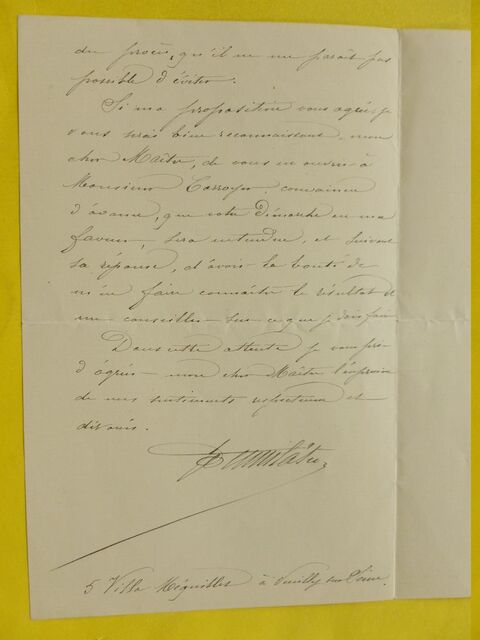 du procès, qu'il ne me paraît pas
possible d'éviter.
Si ma proposition vous agrée, je
vous serais bien reconnaissant, mon
cher Maître, de vous en ouvrir à
Monsieur Carroyer, convaincu
d'avance, que votre démarche en ma
faveur, sera entendue, et suivant
sa réponse, d'avoir la bonté de
m'en faire connaître le résultat et
me conseiller sur ce que je dois faire.
Dans cette attente je vous prie
d'agréer mon cher Maître l'expression
de mes sentiments respectueux et
dévoués.
5 Villa Méquillet à Neuilly sur Seine.